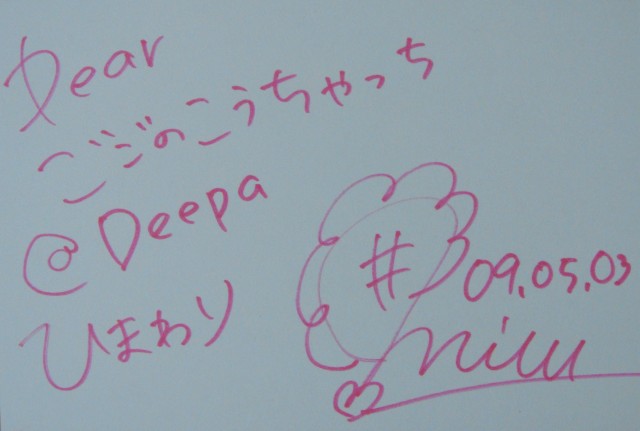 Dear
ごじのこうちゃっち
@Deepa
ひまわり
09.05.03